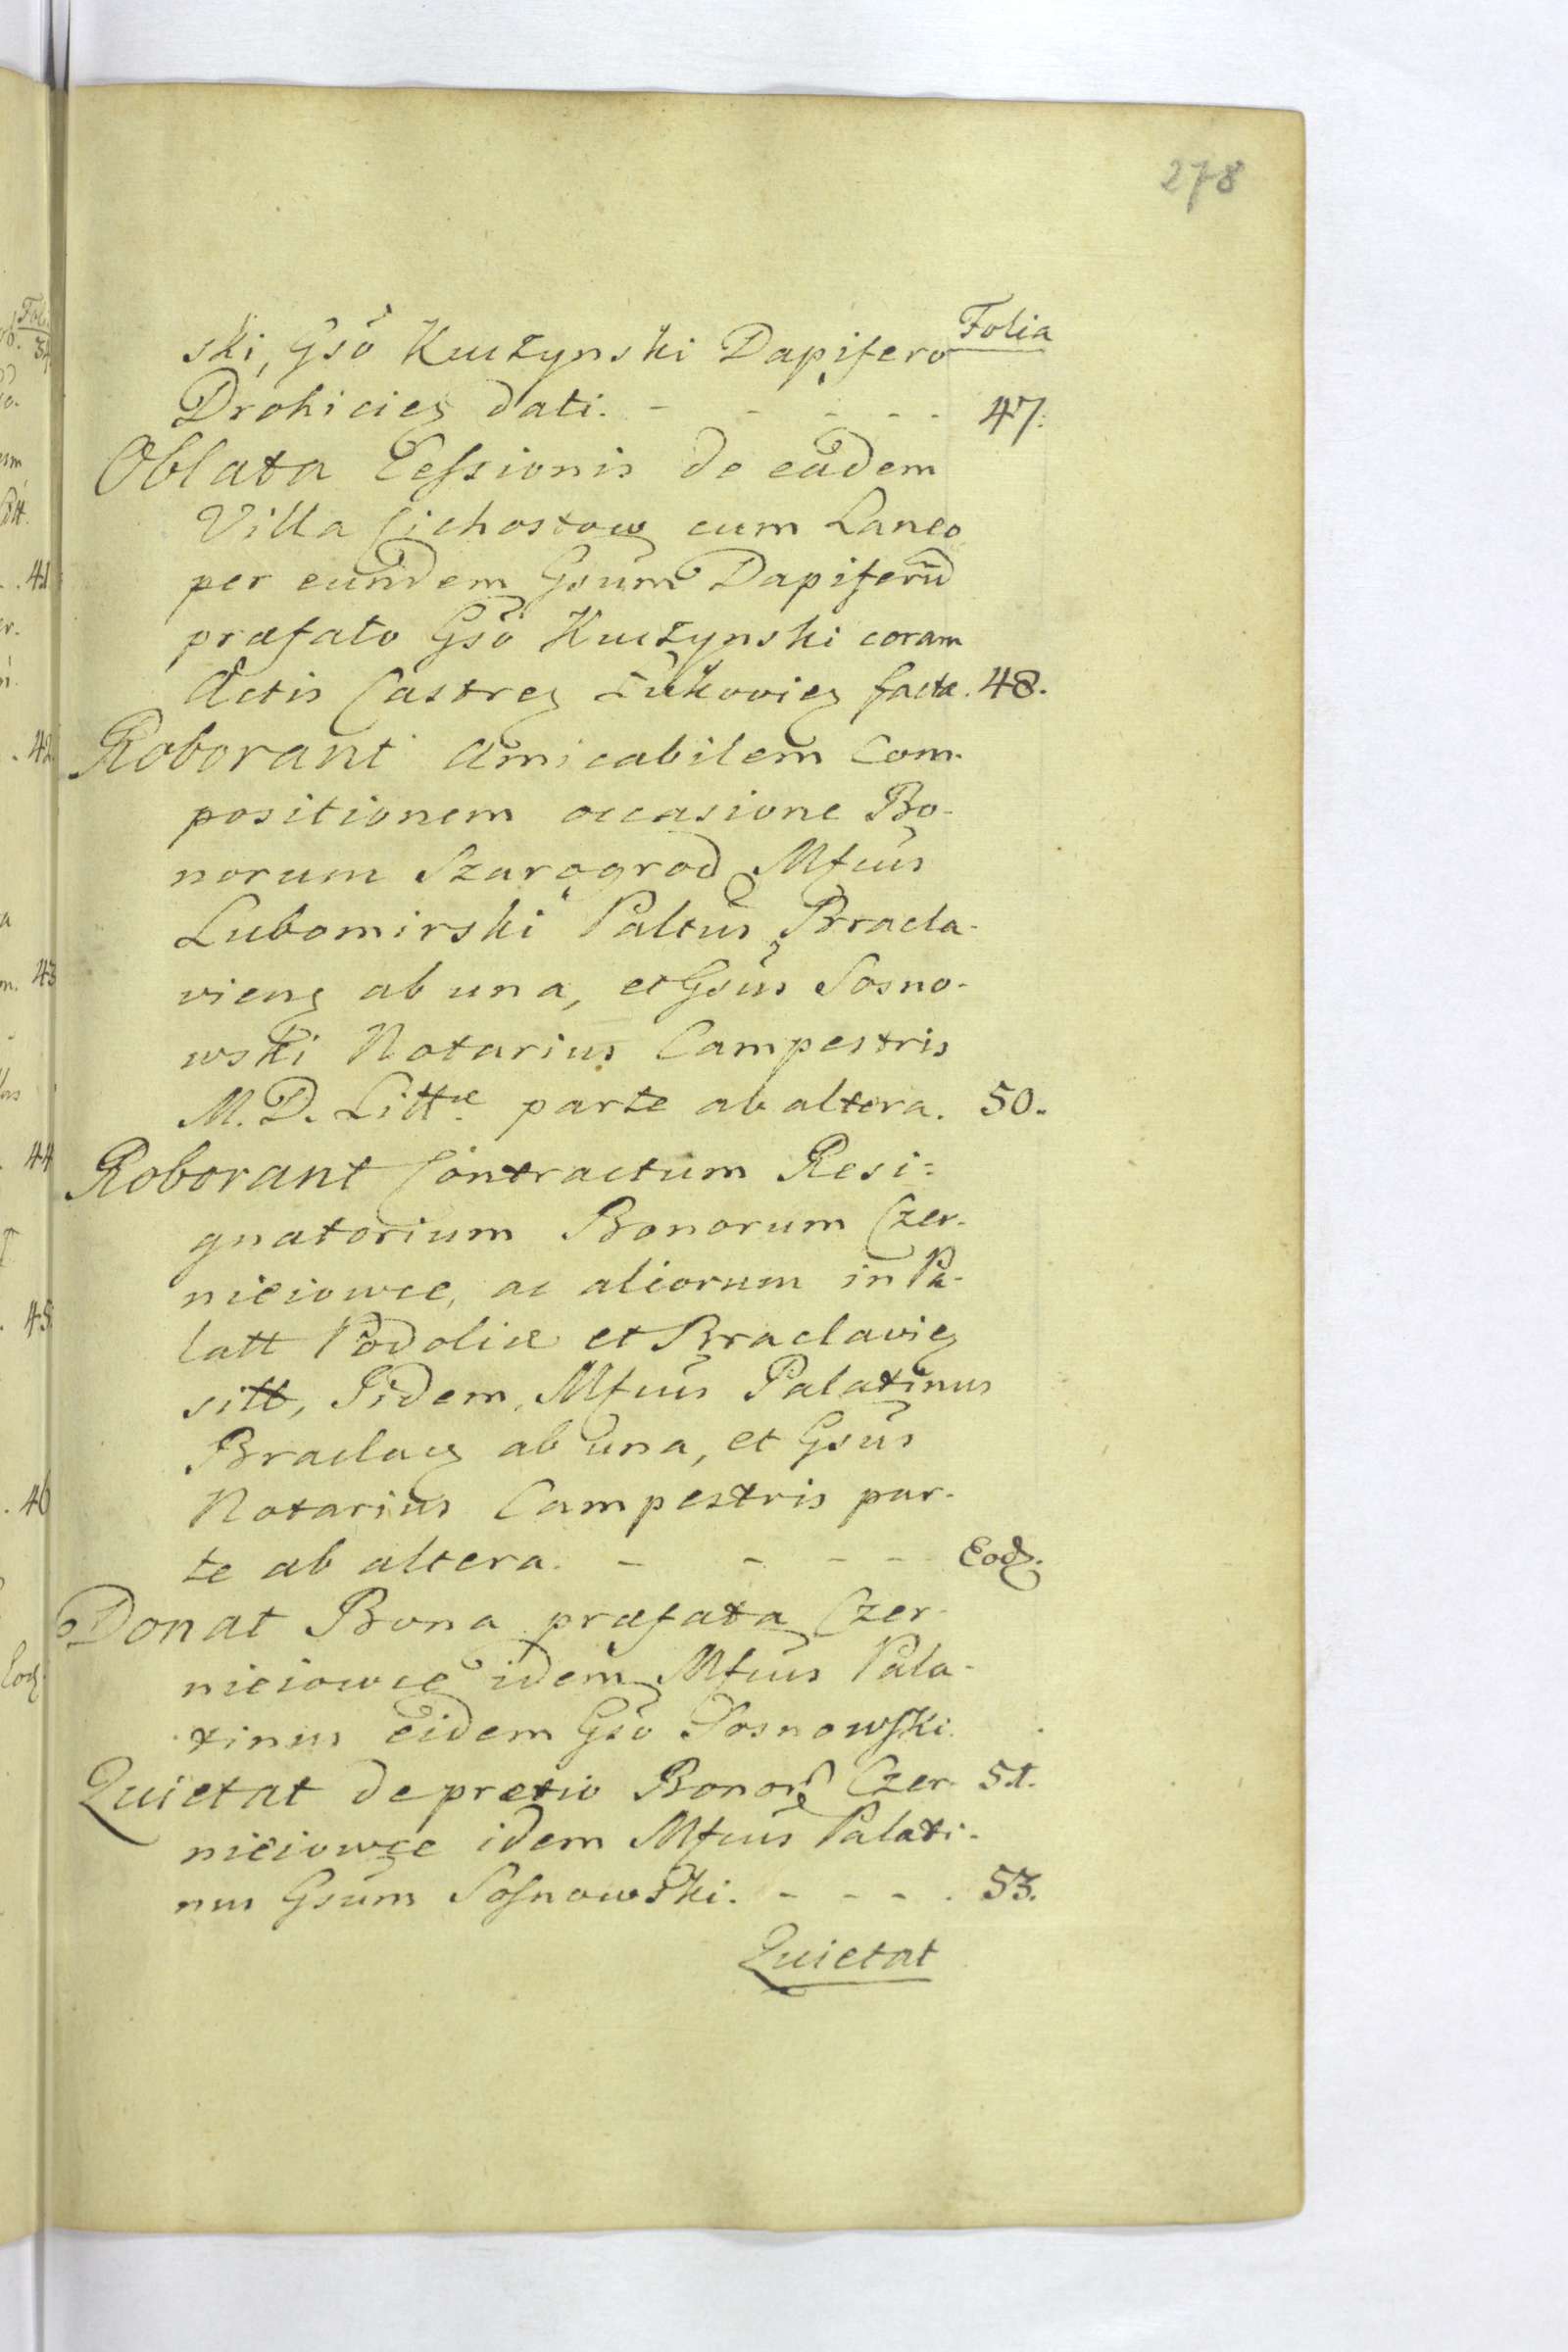 278
Folia
ski, Gsō Kuczynski Dapifero
Drohicieȝ dati. - - - - - 47.
Oblata Cessionis de eadem
Villa Cichostow cum Laneo
per eundem Gsum Dapiferū
præfato Gsō Kuczynski coram
Actis Castreȝ Łukovieȝ facta. 48.
Roborant amicabilem Com-
positionem occasione Bo-
norum Szarogrod Mfcus
Lubomirski Paltus Bracla-
viens ab una, et Gsus Sosno-
wski Notarius Campestris
M. D. Littæ parte ab altera. 50.
Roborant Contractum Resi=
gnatorium Bonorum Czer-
nieiowce, ac aliorum in Pa-
latt Podoliæ et Braclavieȝ
sitt, Iidem, Mfcus Palatinus
Braclaȝ ab una, et Gsus
Notarius Campestris par-
te ab altera. - - - - Eodȝ.
Donat Bona præfata Czer-
nieiowce idem Mfcus Pala-
tinus eidem Gsō Sosnowski.
Quietat de pretio Bonor Czer- 51.
nieiowce idem Mfcus Palati-
nus Gsum Sosnowski. - - - . 53.
Quietat